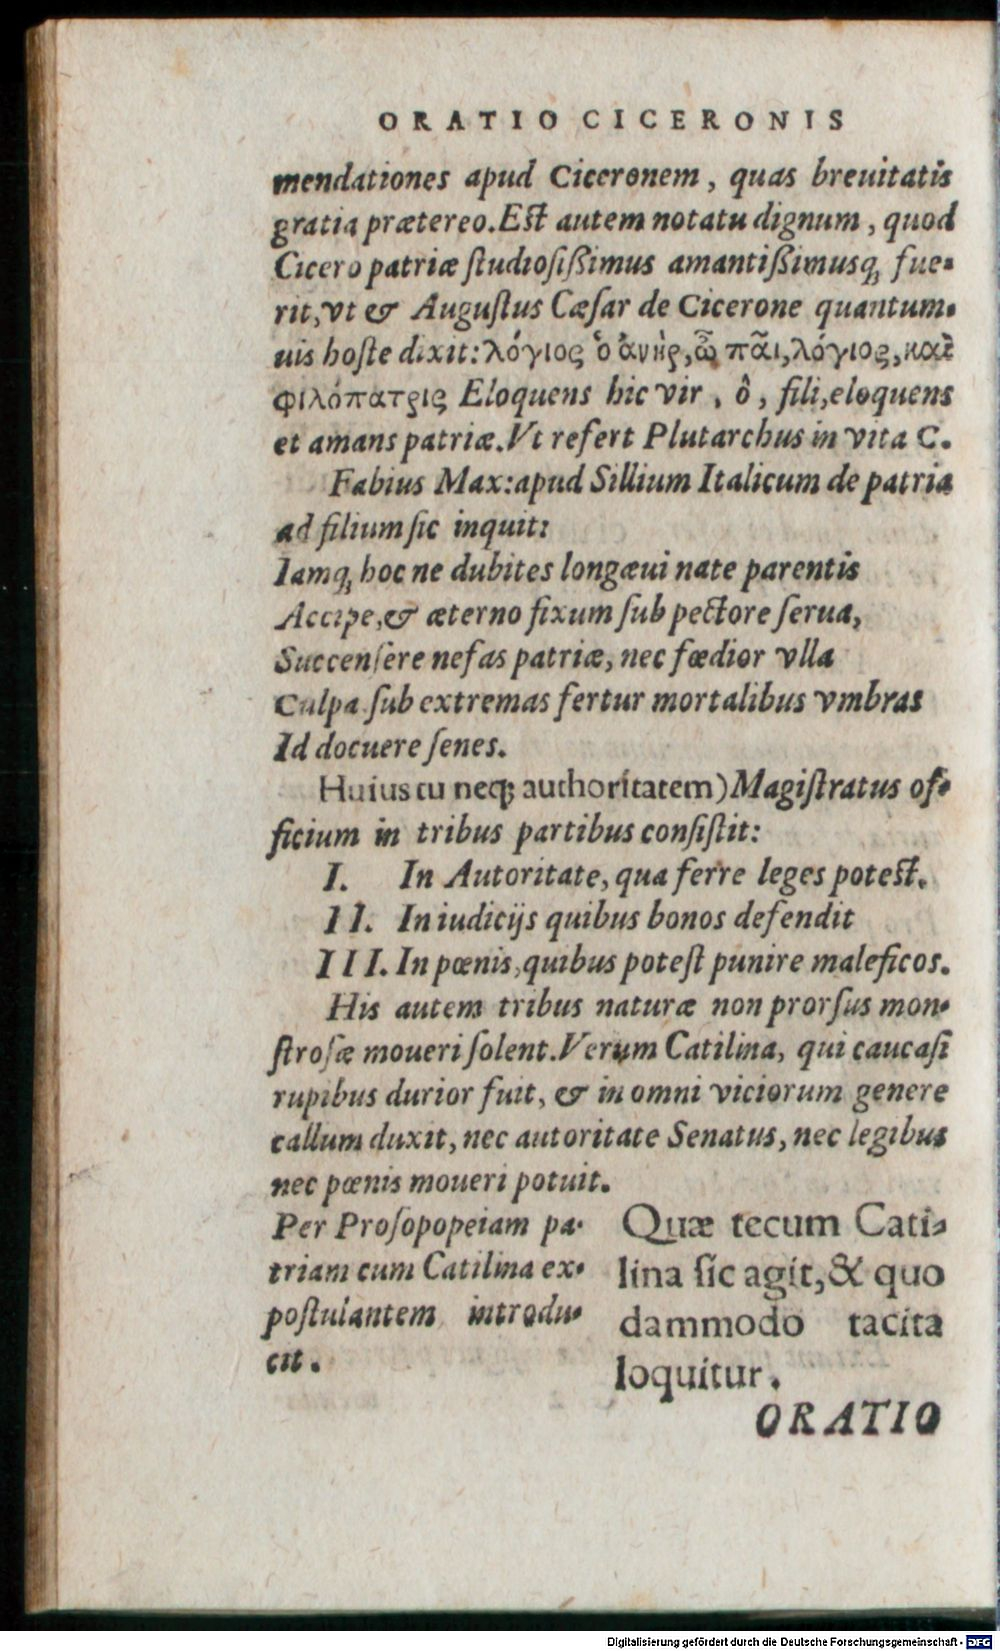 ORATIO CICERONIS
mendationes apud Ciceronem, quas breuitatis
gratia prætereo.Est autem notatu dignum, quod
Cicero patriæ ſtudioſißimus amantißimusq́; fue-
rit, vt & Auguſtus Cæſar de Cicerone quantum-
uis hoſte dixit: λόγιος ὁ ἀνὴρ, ὦ παῖ, λόγιος, καὶ
φιλόπατρις Eloquens hic vir, ô, fili, eloquens
et amans patriæ.Vt refert Plutarchus in vita C.
Fabius Max:apud Sillium Italicum de patria
ad filium ſic inquit:
Iamq́; hoc ne dubites longæui nate parentis
Accipe, & æterno fixum ſub pectore ſerua,
Succenſere nefas patriæ, nec fœdior vlla
Culpa ſub extremas fertur mortalibus vmbras
Id docuere ſenes.
Huius tu neq; authoritatem) Magiſtratus of-
ficium in tribus partibus conſiſtit:
I. In Autoritate, qua ferre leges poteſt.
II. In iudicijs quibus bonos defendit
III. In pœnis, quibus poteſt punire maleficos.
His autem tribus naturæ non prorſus mon-
ſtroſæ moueri ſolent.Verum Catilina, qui caucaſi
rupibus durior fuit, & in omni viciorum genere
callum duxit, nec autoritate Senatus, nec legibus
nec pœnis moueri potuit.
Per Proſopopeiam pa-
triam cum Catilina ex-
poſtulantem introdu-
cit.
Quæ tecum Cati-
lina ſic agit, & quo
dammodo tacita
loquitur.
ORATIO
Digitalisierung gefördert durch die Deutsche Forschungsgemeinschaft - DFG